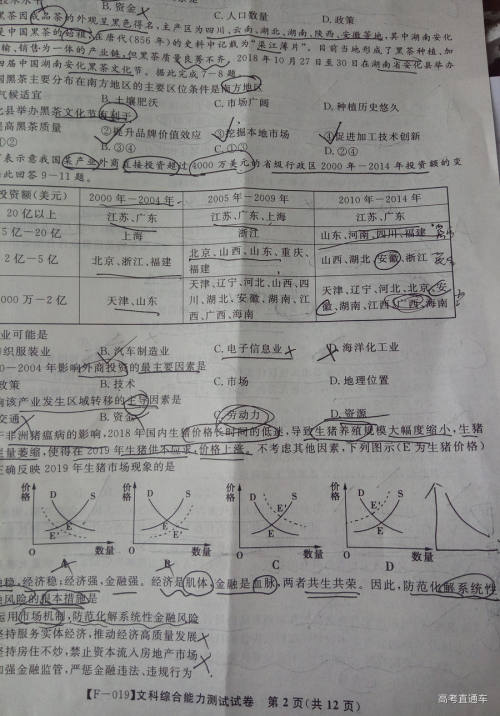 B. 资金 C. 人口数量 D. 政策
黑茶因成品茶的外观呈黑色得名，主产区为四川、云南、湖北、湖南、陕西、安徽等地，其中湖南安化
是中国黑茶的始祖，在唐代(856 年)的史料中记载为“渠江薄片”。目前当地形成了黑茶种植、加
输、销售为一体的产业链，但黑茶质量良莠不齐。2018 年 10 月 27 日至 30 日在湖南省安化县举办
四届中国湖南安化黑茶文化节。据此完成 7～8 题。
国黑茶主要分布在南方地区的主要区位条件是南方地区
气候适宜 B. 土壤肥沃 C. 市场广阔 D. 种植历史悠久
化县举办黑茶文化节有利于
提高黑茶质量 ②提升品牌价值效应 ③挖掘本地市场 ④促进加工技术创新
①② B. ③④ C. ①③ D. ②④
表示意我国某产业外商直接投资超过 4000 万美元的省级行政区 2000 年－2014 年投资额的变
此回答 9－11 题。
投资额(美元) 2000 年－2004 年 2005 年－2009 年 2010 年－2014 年
20 亿以上 江苏、广东 江苏、广东、上海 江苏、广东
5 亿－20 亿 上海 浙江 山东、河南、四川、福建
2 亿－5 亿 北京、浙江、福建 北京、山西、山东、重庆、福建 山西、湖北、安徽、浙江
000 万－2 亿 天津、山东 天津、辽宁、河北、山西、四川、湖北、安徽、湖南、江西、广西、海南 天津、辽宁、河北、北京、安徽、湖南、江西、广西、海南
业可能是
纺织服装业 B. 汽车制造业 C. 电子信息业 D. 海洋化工业
0－2004 年影响外商投资的最主要因素是
政策 B. 技术 C. 市场 D. 地理位置
响该产业发生区域转移的主导因素是
交通 B. 资金 C. 劳动力 D. 资源
非洲猪瘟病的影响，2018 年国内生猪价格长时间的低迷，导致生猪养殖规模大幅度缩小，生猪
能量萎缩，使得在 2019 年生猪供不应求，价格上涨。不考虑其他因素，下列图示(E 为生猪价格)
正确反映 2019 年生猪市场现象的是
价格 D S E E′ O 数量
价格 D S E E′ O 数量
价格 D S E′ E O 数量
价格 D S E′ E O 数量
A B C D
融稳，经济稳；经济强，金融强。经济是肌体，金融是血脉，两者共生共荣。因此，防范化解系统性
融风险的根本措施是
运用市场机制，防范化解系统性金融风险
坚持服务实体经济，推动经济高质量发展
坚持房住不炒，禁止资本流入房地产市场
加强金融监管，严惩金融违法、违规行为
【F－019】文科综合能力测试试卷 第 2 页(共 12 页)
高考直通车